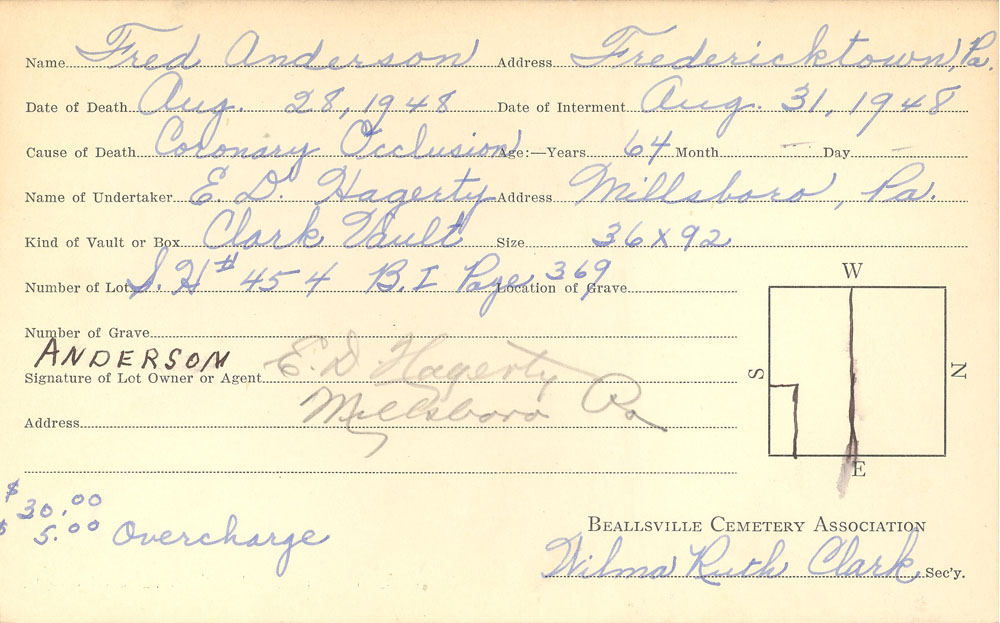 Name Fred Anderson Address Fredericktown, Pa.
Date of Death Aug. 28, 1948 Date of Interment Aug. 31, 1948
Cause of Death Coronary Occlusion Age:—Years 64 Month — Day —
Name of Undertaker E. D. Hagerty Address Millsboro, Pa.
Kind of Vault or Box Clark Vault Size 36 x 92
Number of Lot S. H # 454 B. I Page 369 Location of Grave
W
Number of Grave
ANDERSON
S
N
Signature of Lot Owner or Agent E. D Hagerty
Address Millsboro Pa
E
$30.00
$ 5.00 Overcharge
BEALLSVILLE CEMETERY ASSOCIATION
Wilma Ruth Clark Sec'y.